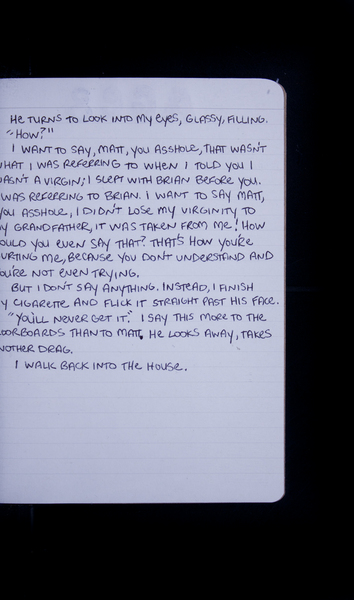 He turns to look into my eyes, glassy, filling.
"How?"
I want to say, Matt, you asshole, that wasn't
what I was referring to when I told you I
wasn't a virgin; I slept with Brian before you.
I was referring to Brian. I want to say Matt,
you asshole, I didn't lose my virginity to
my grandfather, it was taken from me! How
could you even say that? That's how you're
hurting me, because you don't understand and
you're not even trying.
But I don't say anything. Instead, I finish
my cigarette and flick it straight past his face.
"You'll never get it." I say this more to the
floorboards than to Matt. He looks away, takes
another drag.
I walk back into the house.